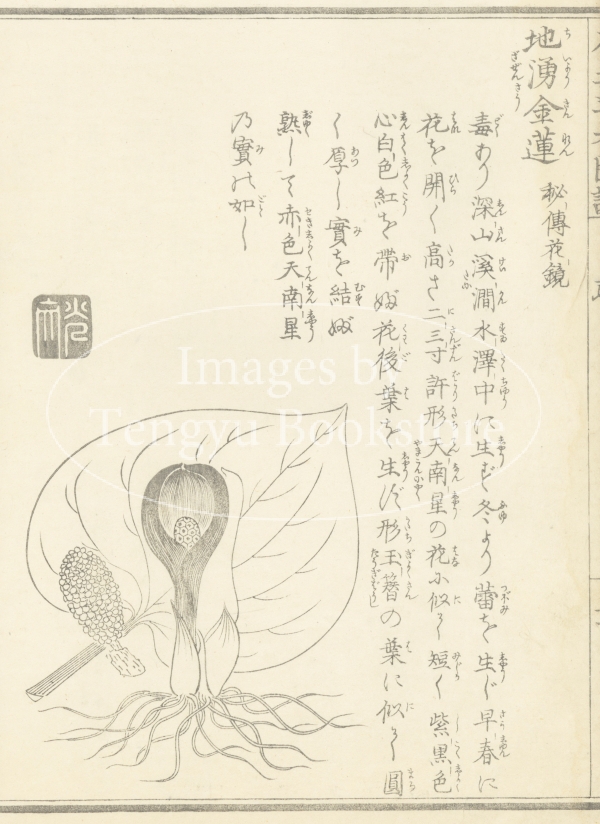 地湧金蓮 秘傳花鏡
ちいようきんれん
ざぜんさう
毒あり深山溪澗水澤中に生ず冬より蕾を生じ早春に
花を開く高さ二三寸許形天南星の花に似て短く紫黒色
心白色紅を帶ぶ花後葉を生ず形玉簪の葉に似て圓
く厚し實を結ぶ
熟して赤色天南星
乃實の如し
Images by
Tengyu Bookstore